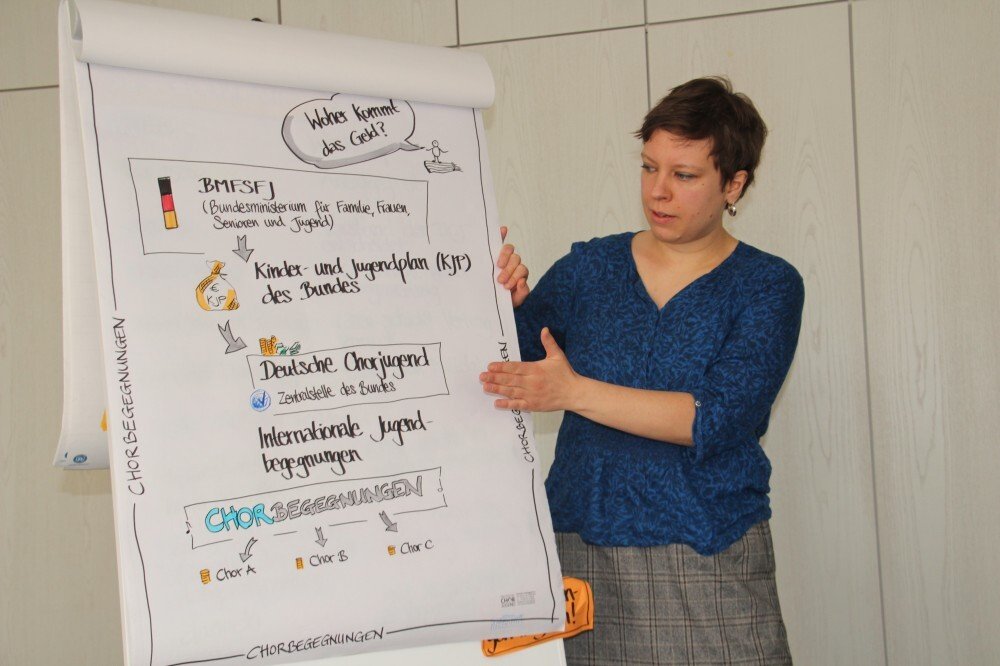 Woher kommt
das Geld?
BMFSFJ
(Bundesministerium für Familie, Frauen,
Senioren und Jugend)
Kinder- und Jugendplan (KJP)
des Bundes
€
KJP
Deutsche Chorjugend
Zentralstelle des Bundes
Internationale Jugend-
begegnungen
CHORBEGEGNUNGEN
Chor A
Chor B
Chor C
CHORBEGEGNUNGEN
CHORBEGEGNUNGEN
CHOR